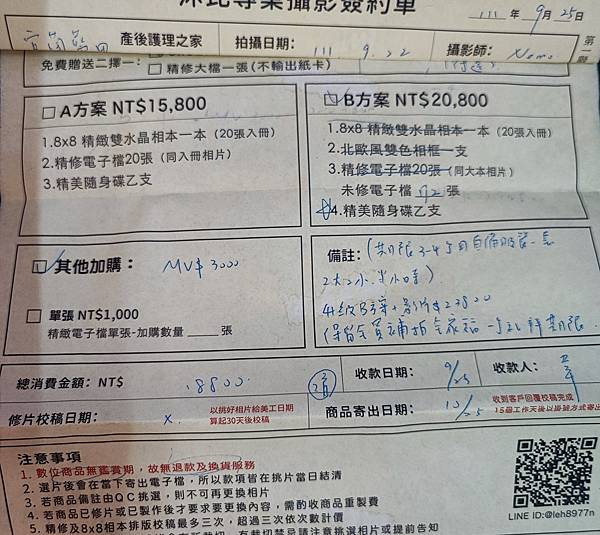 沐比專業攝影簽約單
111 年 9月 25日
產後護理之家 拍攝日期: 111. 9. 22 攝影師: Nemo 第二聯
免費贈送二擇一:
□精修大檔一張(不輸出紙卡)
□A方案 NT$15,800
1.8x8 精緻雙水晶相本一本(20張入冊)
2.精修電子檔20張(同入冊相片)
3.精美隨身碟乙支
B方案 NT$20,800
1.8x8 精緻雙水晶相本一本(20張入冊)
2.北歐風雙色相框一支
3.精修電子檔20張(同大本相片)
未修電子檔 72 張
4.精美隨身碟乙支
其他加購: MV$ 3000
□ 單張 NT$1,000
精緻電子檔單張-加購數量 ____ 張
備註:
總消費金額: NT$ 18800 收款日期: 9/25 收款人:
修片校稿日期: x. 以挑好相片給美工日期
算起30天後校稿
商品寄出日期: 10/25 收到客戶回覆校稿完成
15個工作天後以掛號方式寄出
注意事項
1. 數位商品無鑑賞期,故無退款及換貨服務
2. 選片後會在當下寄出電子檔,所以款項皆在挑片當日結清
3. 若商品備註由QC挑選,則不可再更換相片
4. 若商品已修片或已製作後才要求要更換內容,需酌收商品重製費
5. 精修及8x8相本排版校稿最多三次,超過三次依次數計價
有裁切禁忌請注意挑選相片或提前告知
LINE ID:@leh8977n